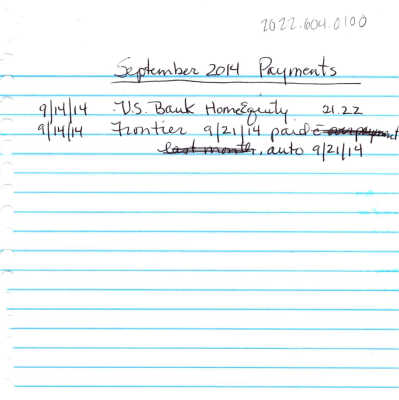 2022.604.0100
September 2014 Payments
9/14/14 U.S. Bank Home Equity 21.22
9/14/14 Frontier 9/21/14 paid c̄ overpayment
last month, auto 9/21/14